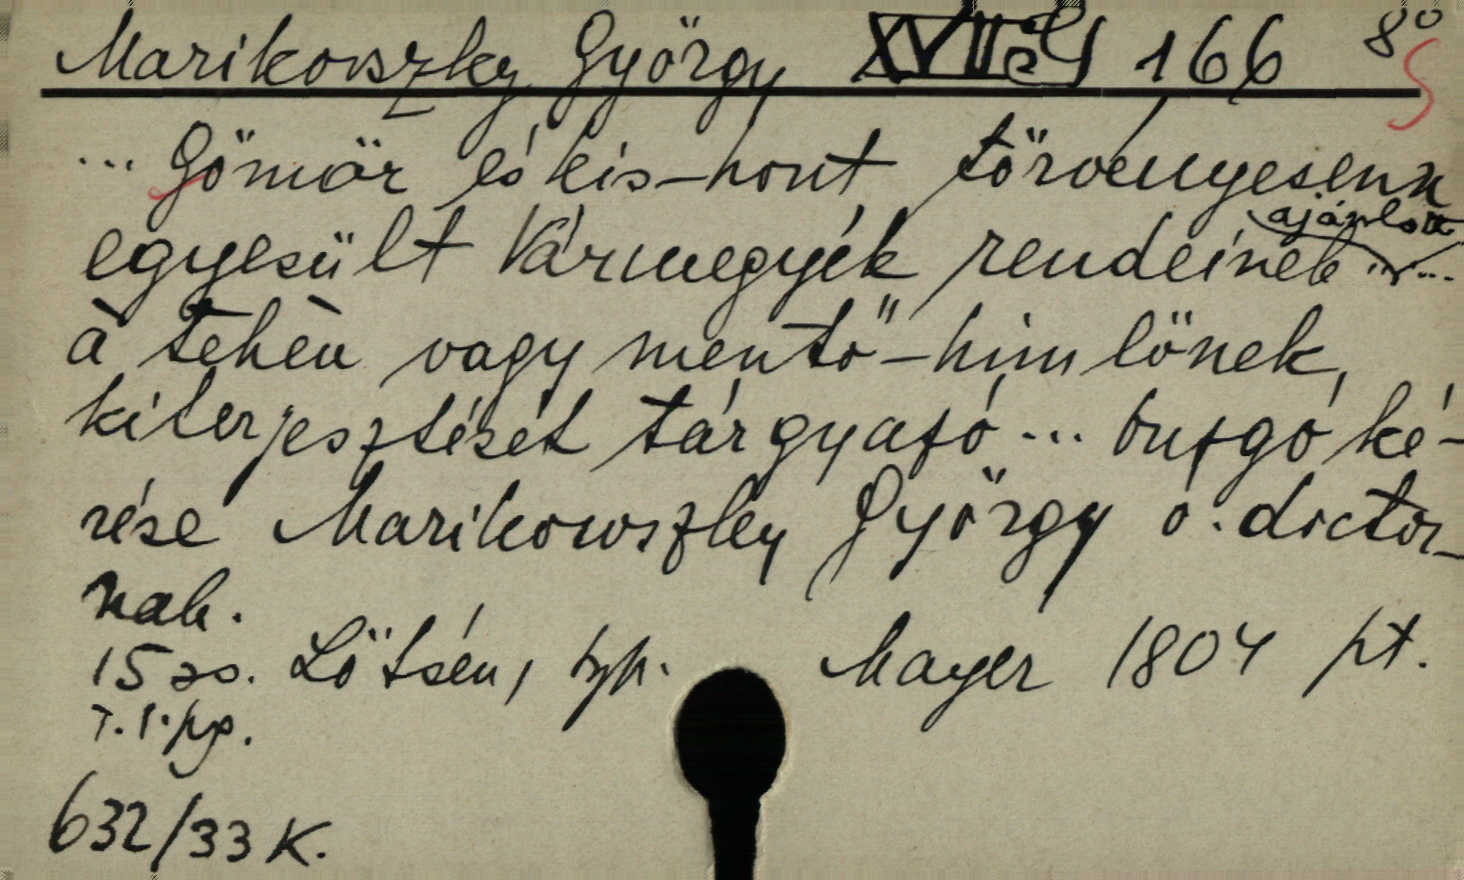 Marikovszky György 166 8°
... Gömör és kis-hont törvényesenn
egyesült Vármegyék rendeinek ajánlott ...
à tehèn vagy mentő-himlönek,
kiterjesztését tárgyazó ... buzgó ké-
rése Marikowszky György o. doctor-
nak.
15 sz. Lötsén, typ. Mayer 1804 pt.
T. 1. pp.
632/33 K.